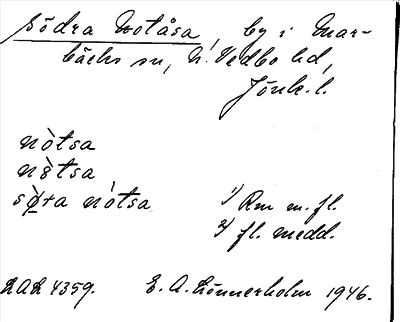 Södra Notåsa, by i Mar-
bäcks sn, N. Vedbo hd,
Jönk. l.
nòtsa
nòtsa
sø̀ra nótsa
1) Rm m. fl.
2) fl. medd.
LAL 4359. E. A. Lönnerholm 1946.